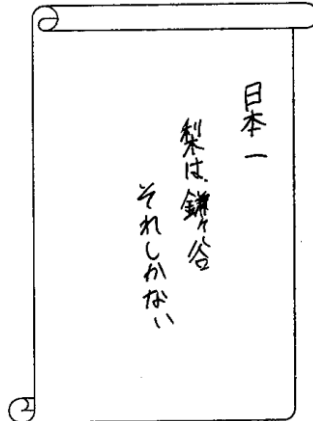 日本一
梨は鎌ケ谷
それしかない